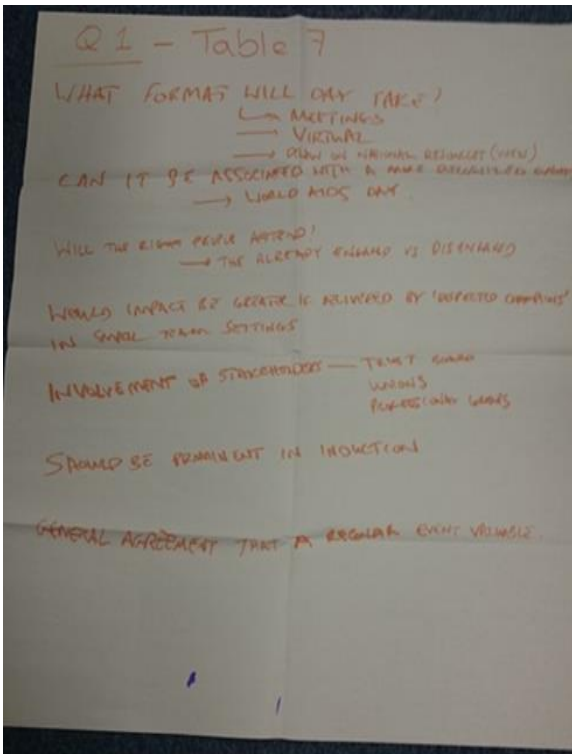 Q1 - Table 7
WHAT FORMAT WILL DAY TAKE?
→ MEETINGS
→ VIRTUAL
→ DRAW ON NATIONAL RESOURCES
CAN IT BE ASSOCIATED WITH A MORE RECOGNISED EVENT
→ WORLD AIDS DAY
WILL THE RIGHT PEOPLE ATTEND?
→ THE ALREADY ENGAGED VS DISENGAGED
WOULD IMPACT BE GREATER IF DELIVERED BY 'RESPECTED CHAMPIONS'
IN SMALL TEAM SETTINGS
INVOLVEMENT OF STAKEHOLDERS — TRUST BOARD
UNIONS
PROFESSIONAL GROUPS
SHOULD BE PROMINENT IN INDUCTION
GENERAL AGREEMENT THAT A REGULAR EVENT VALUABLE.